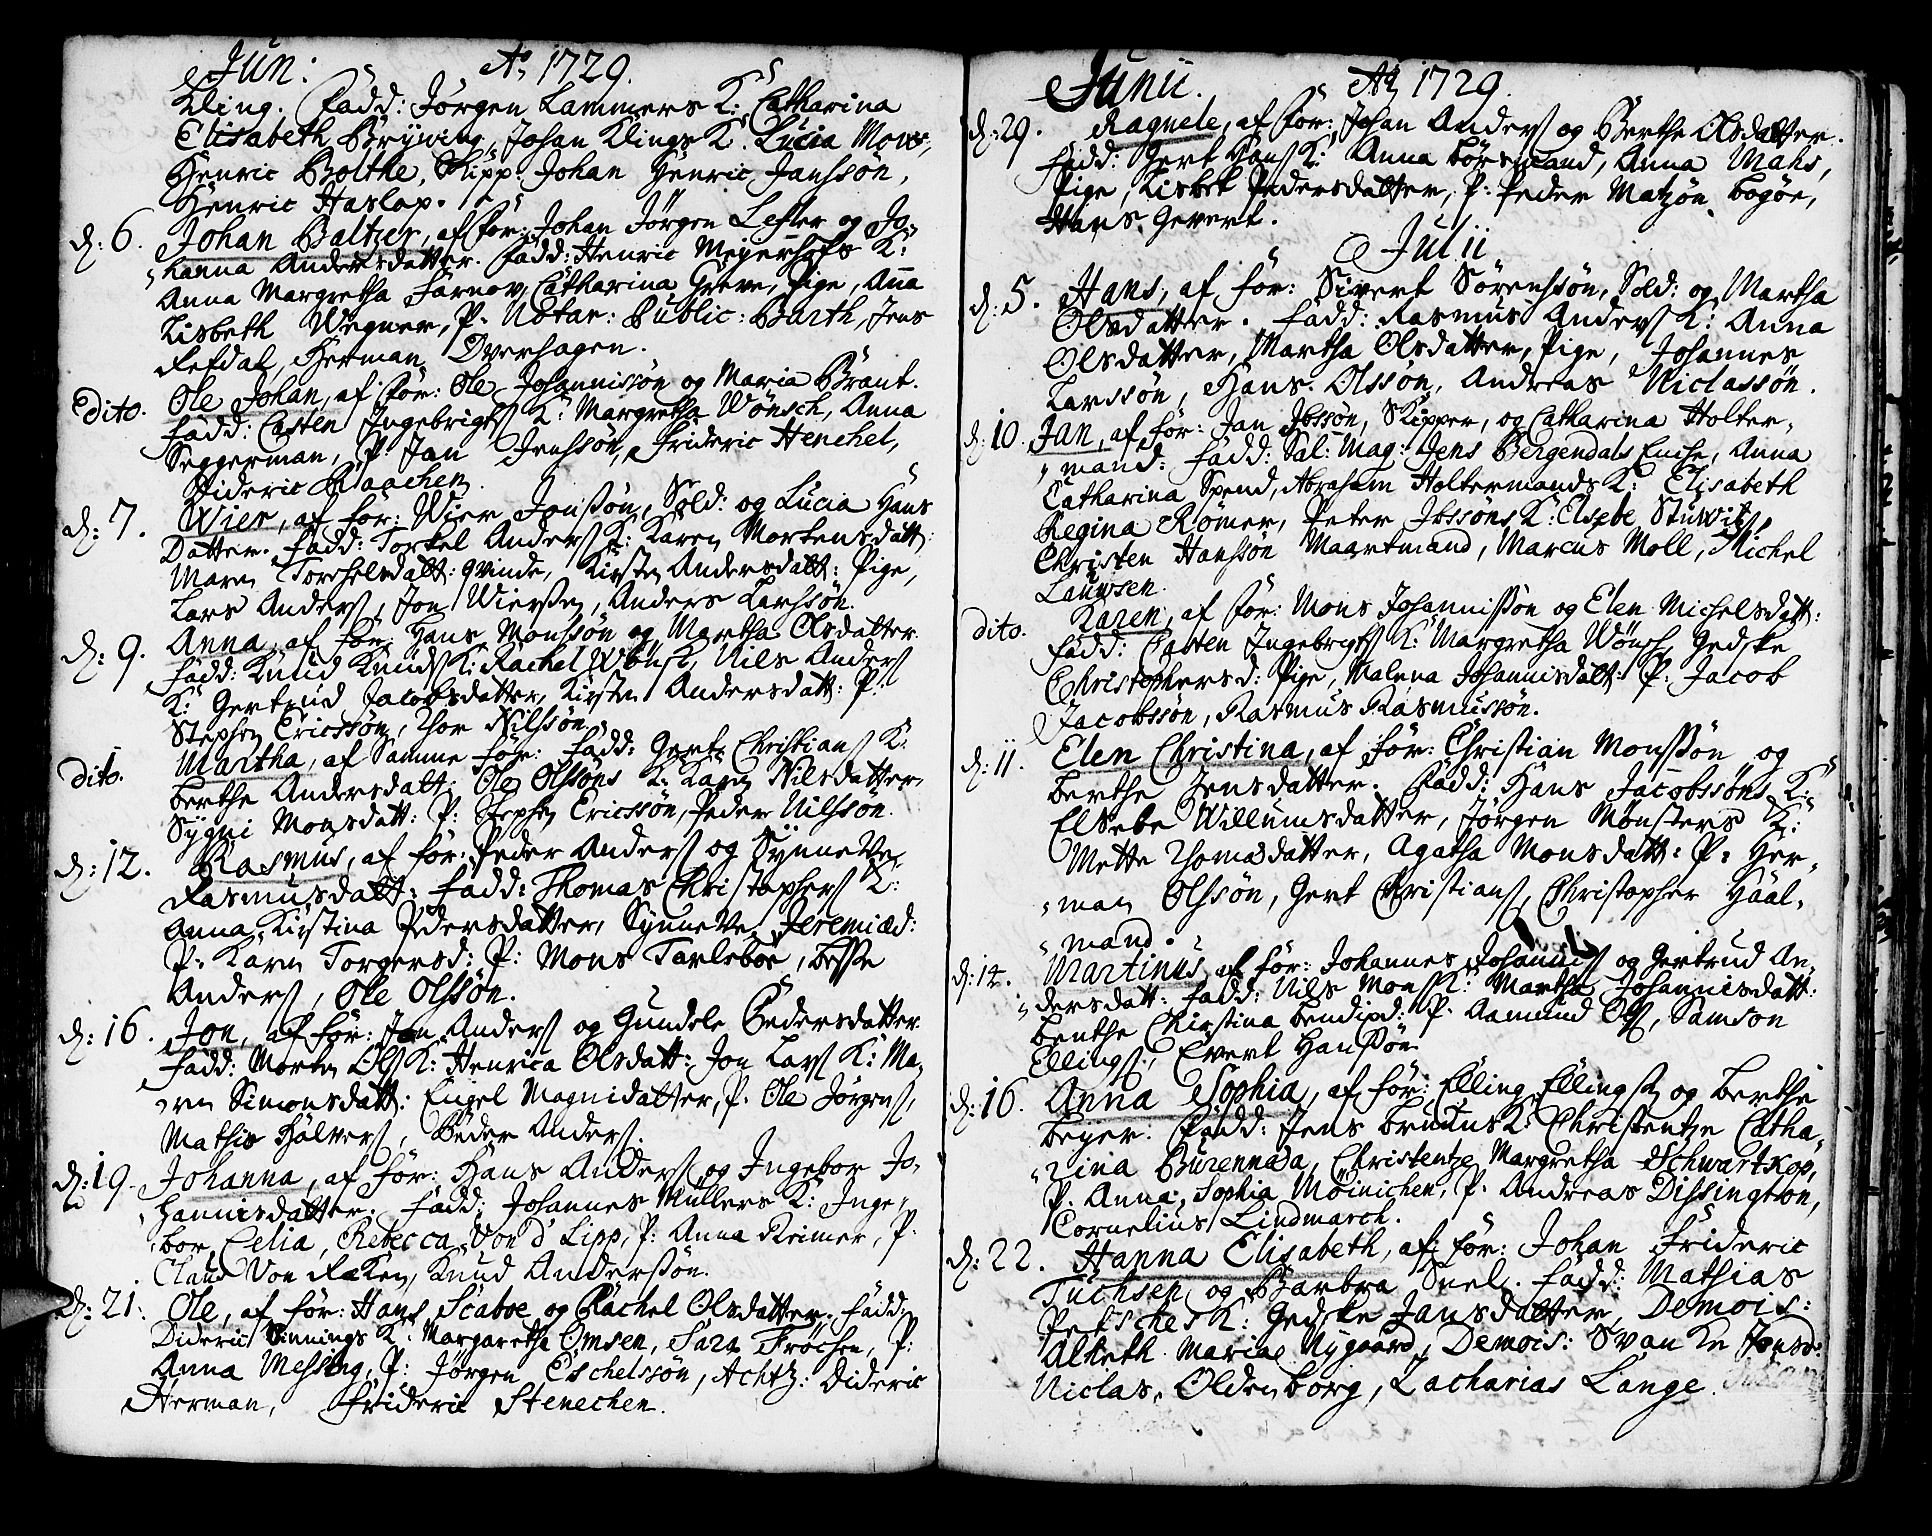 Jun: Ao 1729.
Kling. Fadd: Jørgen Lammers K: Catharina
Elisabeth Bryning, Johan Klings K. Lucia Mow,
Henric Bolthe, Skipp. Johan Henric Janssøn,
Henric Haslop.
d: 6. Johan Baltzer, af For: Johan Jørgen Lesler og Jo-
hanna Andersdatter. Fadd: Henric Meyerhofs K:
Anna Margretha Farnov, Catharina Greve, Pige, Anna
Lisbeth Wegner, P. Notar: Public: Barth, Jens
Refdal, Herman Overhagen.
dito. Ole Johan, af For: Ole Johannissøn og Maria Brant.
Fadd: Casten Ingebrigts K: Margretha Wønsch, Anna
Seggerman, P. Jan Jenssøn, Frideric Henchel,
Dideric Baachen.
d: 7. Wier, af For: Wier Jonssøn, Sold: og Lucia Hans
Datter. Fadd: Torkel Anders K: Karen Mortensdatt:
Maren Torchelsdatt: Qvinde, Kirsten Andersdatt: Pige,
Lars Anders, Jon Wiersen, Anders Larssøn.
d: 9. Anna, af For: Hans Monssøn og Martha Olsdatter.
Fadd: Knud Knuds K: Rachel Wønsch, Nils Anders
K: Gertrud Jacobsdatter, Kirsten Andersdatt: P:
Stephen Ericssøn, Thor Nilssøn.
dito. Martha, af Samme For: Fadd: Gert Christians K:
Berthe Andersdatt: Ole Olssøns K: Karen Nilsdatter,
Sygni Monsdatt: P: Stephen Ericssøn, Peder Nilssøn.
d: 12. Rasmus, af For: Peder Anders og Synneve
Rasmusdatt: Fadd: Thomas Christophers K:
Anna Kirstina Pedersdatter, Synneve Jeremiæd:
P. Karen Torgersd: P: Mons Tarleboe, Besse
Anders, Ole Olssøn.
d: 16. Jon, af For: Jon Anders og Gundele Pedersdatter
Fadd: Morten Ols K: Henrica Olsdatt: Jon Lars K: Ma-
ren Simonsdatt: Engel Magnidatter, P. Ole Jørgens,
Mathis Halvers, Peder Anders.
d: 19. Johanna, af For: Hans Anders og Ingebor Jo-
hannisdatter. Fadd: Johannes Müllers K: Inge-
bor Celia, Rebecca von d' Lipp, P: Anna Reimer, P.
Claus Von Reken, Knud Anderssøn.
d: 21. Ole, af For: Hans Scaboe og Rachel Olsdatter. Fadd:
Dideric Binnings K: Margaretha Omsen, Sara Frøchen, P:
Anna Messing, P: Jørgen Eschelssøn, Achtz: Dideric
Herman, Frideric Stenechen.
Junii. Ao 1729.
d: 29. Ragnele, af For: Johan Anders og Berthe Olsdatter.
Fadd: Gert Hans K: Anna Børsmand, Anna Mahs,
Pige, Lisbet Pedersdatter, P: Peder Matzøn Bogøe,
Hans Gevert.
Julii
d: 5. Hans, af For: Sivert Sørenssøn, Sold: og Martha
Olsdatter. Fadd: Rasmus Anders K: Anna
Olsdatter, Martha Olsdatter, Pige, Johannes
Larssøn, Hans Olssøn, Andreas Niclassøn.
d: 10. Jan, af For: Jan Ibssøn, Skipper, og Catharina Holter-
mand: Fadd: Sal: Mag: Jens Bergendals Enche, Anna
Catharina Spend, Abraham Holtermands K: Elisabeth
Regina Rømer, Peter Ibssøns K: Elsebe Stuwitz,
Christen Hanssøn Maartmand, Marcus Moll, Michel
Lauwsen.
dito. Karen, af For: Mons Johannissøn og Elen Michelsdatt:
Fadd: Casten Ingebrigts K: Margretha Wønsch, Gedske
Christophersd: Pige, Malena Johannisdatt: P. Jacob
Jacobssøn, Rasmus Rasmussøn.
d: 11. Elen Christina, af For: Christian Monssøn og
Berthe Jensdatter. Fadd: Hans Jacobssøns K:
Elsebe Willumsdatter, Jørgen Mønsters K:
Mette Thomasdatter, Agatha Monsdatt: P: Her-
man Olssøn, Gert Christians, Christopher Haal-
mand.
d: 14. Martinus, af For: Johannes Johannis og Gertrud An-
dersdatt: Fadd: Nils Mons K: Martha Johannisdatt:
Benthe Chirstina Bendixd: P. Aamund Ols, Samson
Ellings, Evert Hanssøn.
d: 16. Anna Sophia, af For: Elling Ellings og Berthe
Beyer. Fadd: Jens Bruuns K: Christentze Catha-
rina Burennæa, Christentze Margretha Schwartkop,
P. Anna Sophia Møinichen, P. Andreas Dissington,
Cornelius Lindmarch.
d: 22. Hanna Elisabeth, af For: Johan Frideric
Tuchsen og Barbra Snel. Fadd: Mathias
Petsches K: Gedske Jansdatter, Demois:
Alheth Mariæ Nygaard, Demois: Svanke Jonsd:
Niclas Oldenborg, Zacharias Lange.